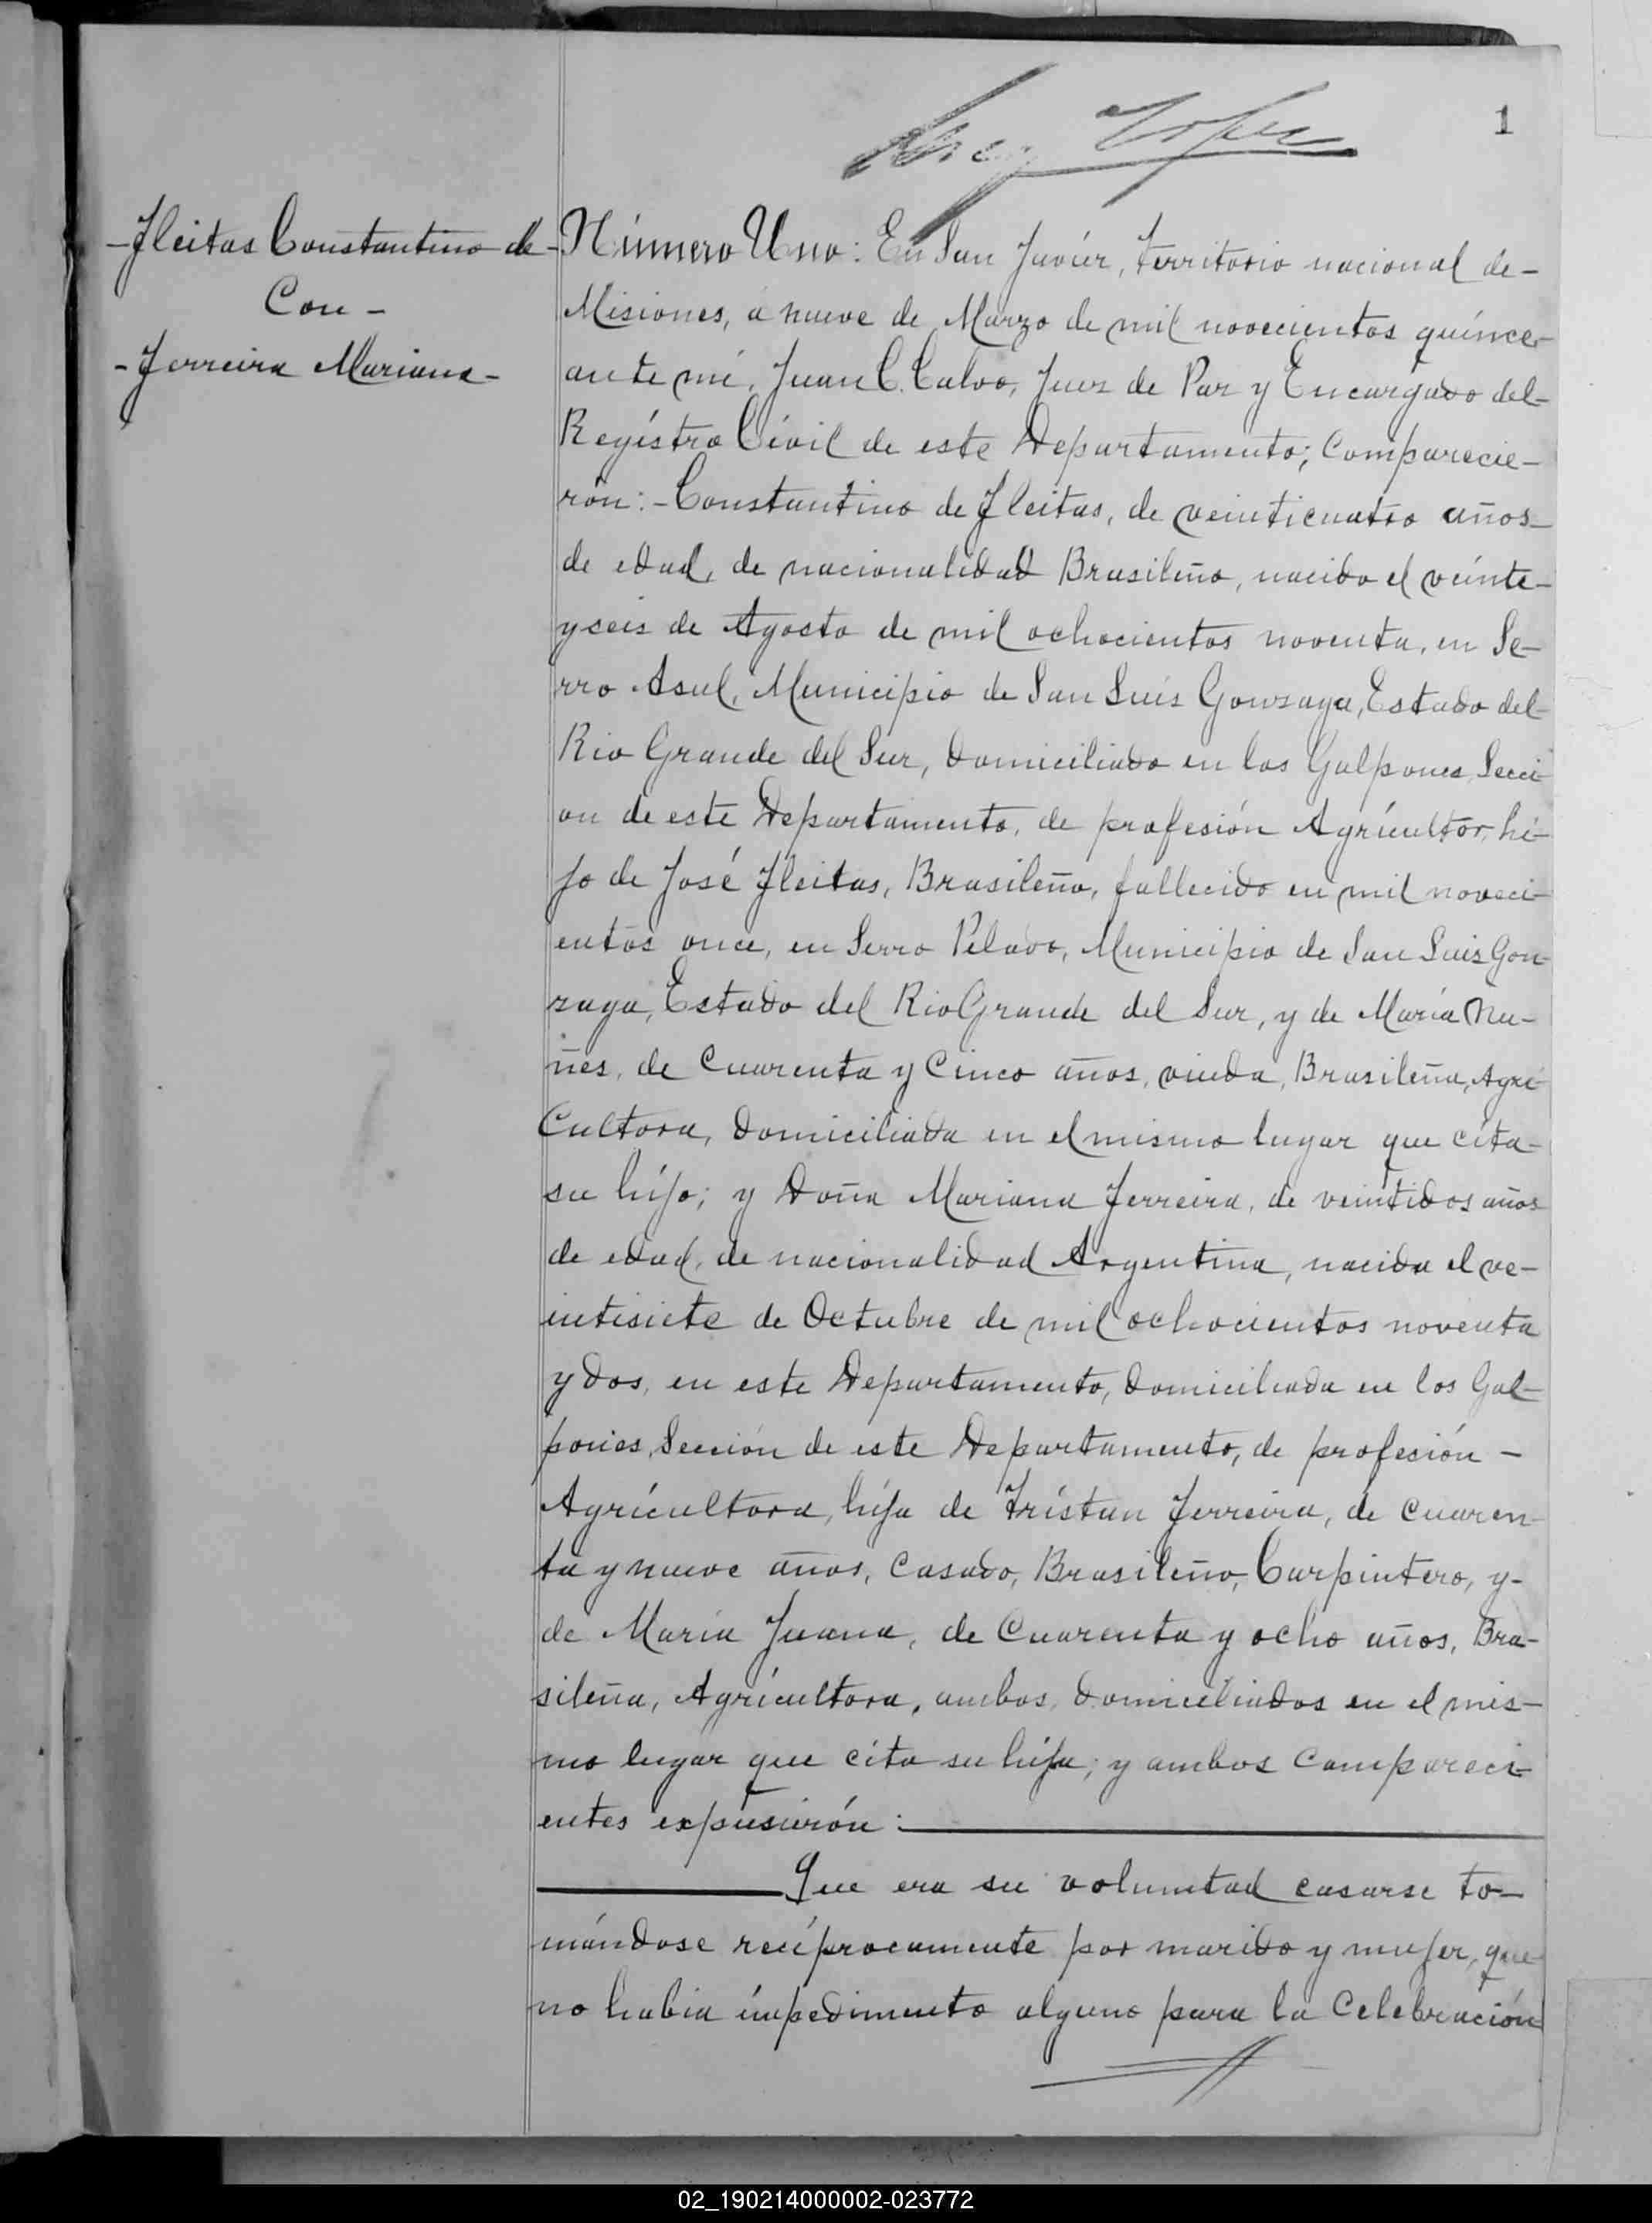 1
-Fleitas Constantino de-
Con-
-Ferreira Mariana-
Número Uno: En San Javier, territorio nacional de-
Misiones, a nueve de Marzo de mil novecientos quínce-
ante mí, Juan C. Calvo, Juez de Paz y Encargado del-
Regístro Cívil de este Departamento; Comparecie-
rón:-Constantino de Fleitas, de veinticuatro años-
de edad, de nacionalidad Brasileño, nacido el veínte-
y seis de Agosto de mil ochocientos noventa, en Se-
rro Asul, Municipio de San Luís Gonzaga, Estado del-
Rio Grande del Sur, domiciliado en los Galpones, Secci-
on de este Departamento, de profesión Agrícultor, hi-
jo de José Fleitas, Brasileño, fallecido en mil noveci-
entos once, en Serro Pelado, Municipio de San Luis Gon-
zaga, Estado del Rio Grande del Sur, y de María Nu-
ñes, de Cuarenta y Cinco años, viuda, Brasileña, Agri-
Cultora, domiciliada en el mismo lugar que cíta-
su híjo; y Doña Mariana Ferreira, de veintidos años
de edad, de nacionalidad Argentina, nacida el ve-
intisiete de Octubre de mil ochocientos noventa
y dos, en este Departamento, domiciliada en los Gal-
pones, Sección de este Departamento, de profesión-
Agrícultora, híja de Trístan Ferreira, de Cuaren-
ta y nueve años, Casado, Brasileño, Carpintero, y-
de Maria Juana, de Cuarenta y ocho años, Bra-
sileña, Agrícultora, ambos domiciliados en el mis-
mo lugar que cíta su híja; y ambos Compareci-
entes expusierón:
Que era su voluntad casarse to-
mándose recíprocamente por marido y mujer, que
no habia ímpedimento alguno para la Celebración
02_190214000002-023772